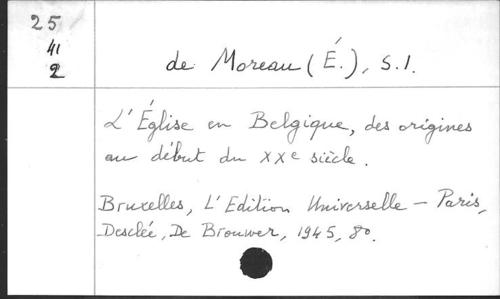 25
41
2
de Moreau (É.), S.I.
L'Église en Belgique, des origines
au début du XXe siècle.
Bruxelles, L'Edition Universelle – Paris,
Desclée, De Brouwer, 1945, 8o.